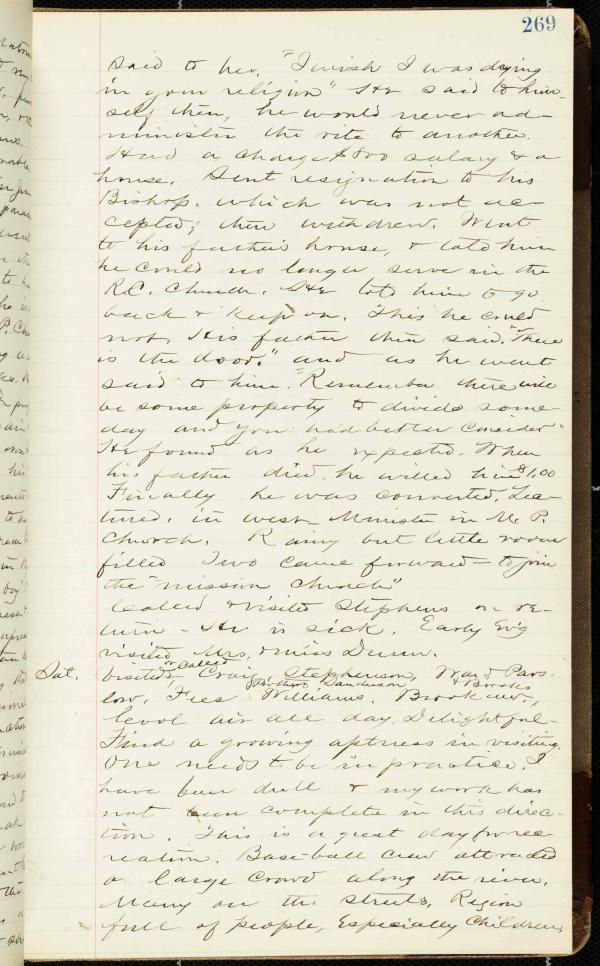 269
said to her, "I wish I was dying
in your religion" He said to him-
self then, he would never ad-
minister the rite to another.
Had a charge $800 salary & a
house. Sent resignation to his
Bishop. which was not ac-
cepted; then withdrew. Went
to his father's house, & told him
he could no longer serve in the
R.C. Church. He told him to go
back & keep on. This he could
not. His father then said. "There
is the door." and as he went
said to him. "Remember there will
be some property to divide some-
day and you had better consider"
He found as he expected. When
his father died he willed him $1.00
Finally he was converted. Lec-
tured. in west Minister in M. P.
Church. Rainy but little room
filled Two came forward - to join
the "mission church"
Called & visited Stephens on re-
turn - He is sick. Early Ev'g
visited Mrs. & miss Dunn.
Sat. Visited or Called Craig, Stephenson, Way & Pars-
low, Fies Williams. Brother Sanderson & Brooks
Cool air all day. Delightful-
Find a growing aptness in visiting.
One needs to be in practice. I
have been dull & my work has
not been complete in this direc-
tion. This is a great day for rec-
reation. Base-ball crew attracted
a large crowd along the river.
Many on the streets, Region
full of people, Especially Children,